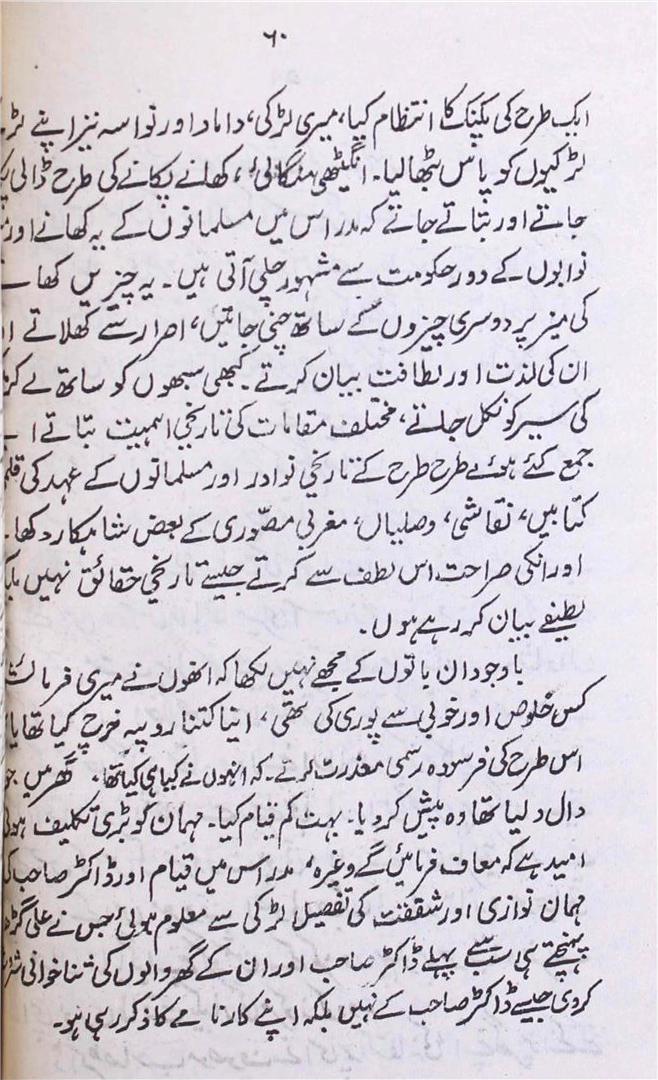 ۶۰
ایک طرح کی پکنک کا انتظام کیا، میری لڑکی، داماد اور نواسہ نیز اپنے
لڑکیوں کو پاس بٹھا لیا۔ انگیٹھی منگالی، کھانے پکانے کی طرح ڈالی
جاتے اور بتاتے جاتے کہ مدراس میں مسلمانوں کے یہ کھانے اور
نوابوں کے دور حکومت سے مشہور چلی آتی ہیں۔ یہ چیزیں
کی میز پر دوسری چیزوں کے ساتھ چنی جاتیں، اصرار سے کھلاتے
ان کی لذت اور لطافت بیان کرتے۔ کبھی سبھوں کو ساتھ لے کر
کی سیر کو نکل جاتے، مختلف مقامات کی تاریخی اہمیت بتاتے
جمع کئے ہوئے طرح طرح کے تاریخی نوادر اور مسلمانوں کے عہد کی
کتابیں، نقاشی، وصلیاں، مغربی مصّوری کے بعض شاہکار
اور انکی صراحت اس لطف سے کرتے جیسے تاریخی حقائق نہیں
لطیفے بیان کر رہے ہوں۔
باوجود ان باتوں کے مجھے نہیں لکھا کہ انھوں نے میری
کس خلوص اور خوبی سے پوری کی تھی، اپنا کتنا روپیہ خرچ کیا تھا یا
اس طرح کی فرسودہ رسمی معذرت کرتے۔ کہ انہوں نے کیا ہی کیا تھا، گھر میں جو
دال دلیا تھا وہ پیش کر دیا۔ بہت کم قیام کیا۔ مہمان کو بڑی تکلیف
امید ہے کہ معاف فرمائیں گے وغیرہ، مدراس میں قیام اور ڈاکٹر صاحب
مہمان نوازی اور شفقت کی تفصیل لڑکی سے معلوم ہوئی جس نے علی گڑھ
پہنچتے ہی سب سے پہلے ڈاکٹر صاحب اور ان کے گھر والوں کی ثنا خوانی
کر دی جیسے ڈاکٹر صاحب کے نہیں بلکہ اپنے کارنامے کا ذکر رہی ہو۔